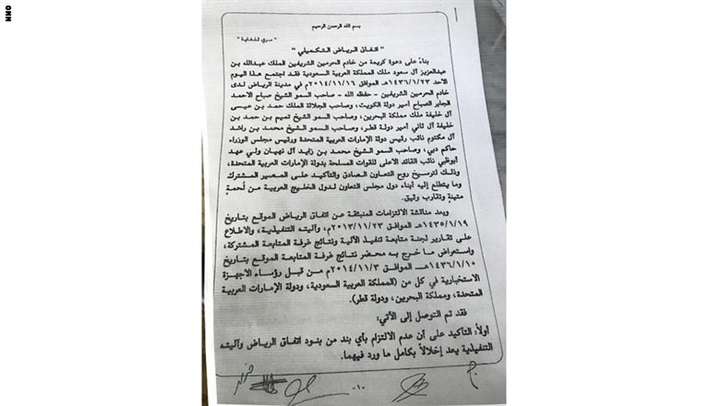 CNN
بسم الله الرحمن الرحيم
"سري للغاية"
"اتفاق الرياض التكميلي"
بناءً على دعوة كريمة من خادم الحرمين الشريفين الملك عبدالله بن
عبدالعزيز آل سعود ملك المملكة العربية السعودية فقد اجتمع هذا اليوم
الأحد ١٤٣٦/١/٢٣هـ الموافق ٢٠١٤/١١/١٦م في مدينة الرياض لدى
خادم الحرمين الشريفين - حفظه الله - صاحب السمو الشيخ صباح الأحمد
الجابر الصباح أمير دولة الكويت، وصاحب الجلالة الملك حمد بن عيسى
آل خليفة ملك مملكة البحرين، وصاحب السمو الشيخ تميم بن حمد بن
خليفة آل ثاني أمير دولة قطر، وصاحب السمو الشيخ محمد بن راشد
آل مكتوم نائب رئيس دولة الإمارات العربية المتحدة ورئيس مجلس الوزراء
حاكم دبي، وصاحب السمو الشيخ محمد بن زايد آل نهيان ولي عهد
أبوظبي نائب القائد الأعلى للقوات المسلحة بدولة الإمارات العربية المتحدة،
وذلك لترسيخ روح التعاون الصادق والتأكيد على المصير المشترك
وما يتطلع إليه أبناء دول مجلس التعاون لدول الخليج العربية من لُحمةٍ
متينةٍ وتقارب وثيق.
وبعد مناقشة الالتزامات المنبثقة عن اتفاق الرياض الموقع بتاريخ
١٤٣٥/١/١٩هـ الموافق ٢٠١٣/١١/٢٣م، وآليته التنفيذية، والاطلاع
على تقارير لجنة متابعة تنفيذ الآلية ونتائج غرفة المتابعة المشتركة،
واستعراض ما خرج به محضر نتائج غرفة المتابعة الموقع بتاريخ
١٤٣٦/١/١٠هـ الموافق ٢٠١٤/١١/٣م من قبل رؤساء الأجهزة
الاستخبارية في كل من (المملكة العربية السعودية، ودولة الإمارات العربية
المتحدة، ومملكة البحرين، ودولة قطر).
فقد تم التوصل إلى الآتي:
أولاً: التأكيد على أن عدم الالتزام بأي بند من بنود اتفاق الرياض وآليته
التنفيذية يعد إخلالاً بكامل ما ورد فيهما.